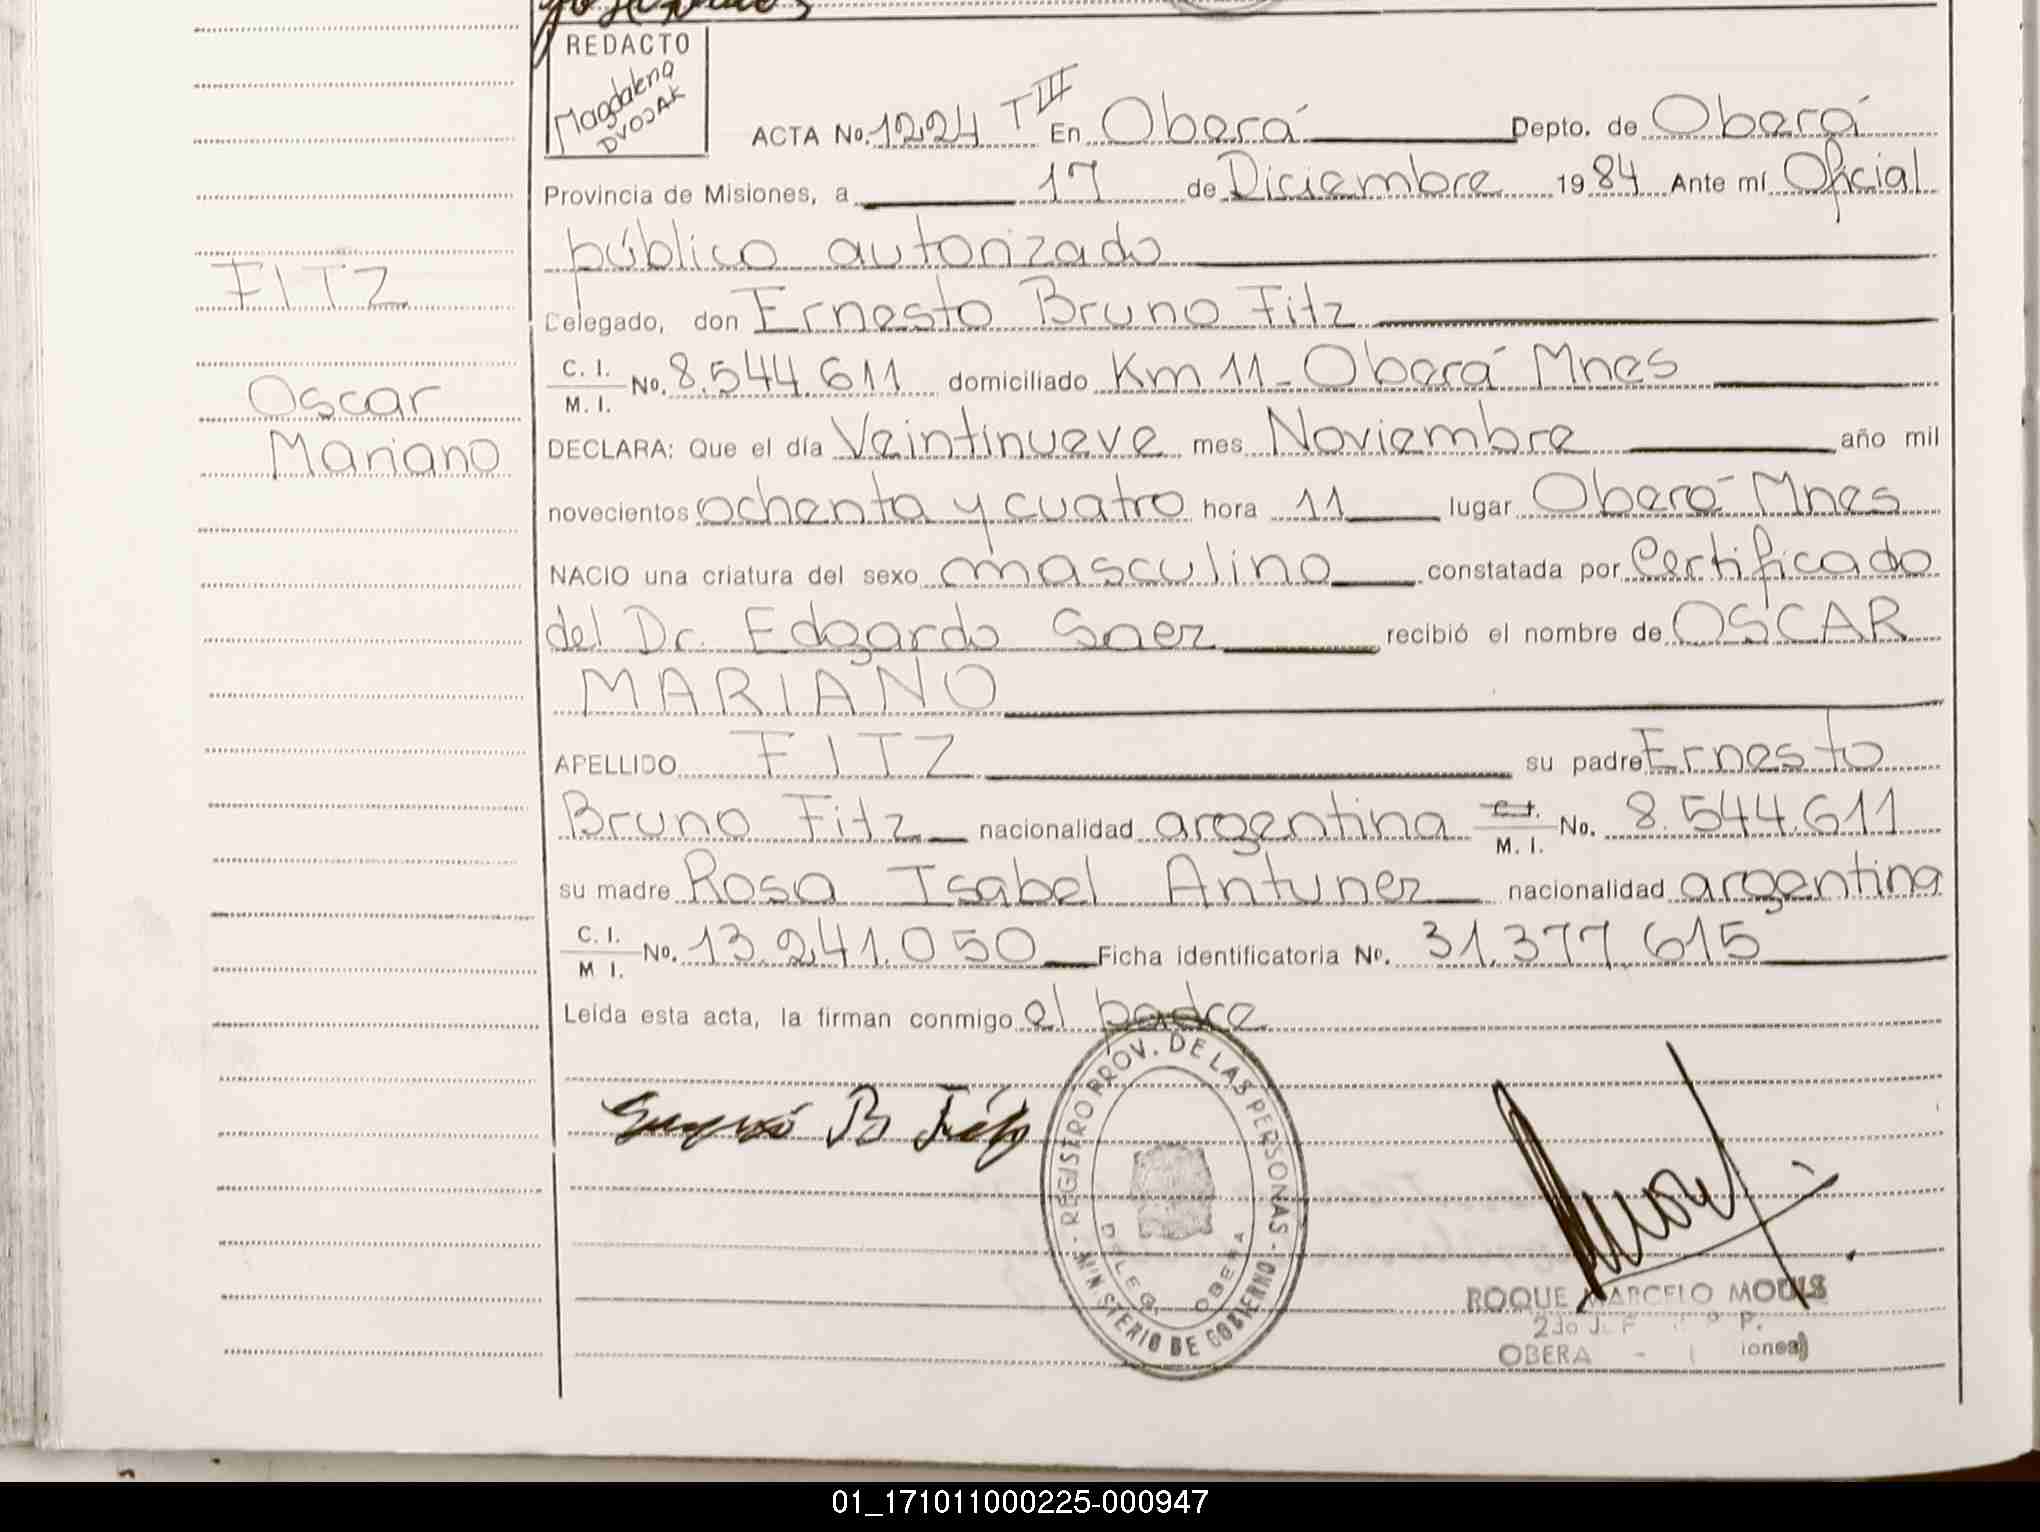 REDACTO
Magdalena
DVOJAK
ACTA No. 1224 T III En Oberá Depto. de Oberá
Provincia de Misiones, a 17 de Diciembre 1984 Ante mí Oficial
público autorizado
FITZ
Delegado, don Ernesto Bruno Fitz
C. I.
M. I. No. 8.544.611 domiciliado Km 11 - Oberá Mnes
Oscar
Mariano
DECLARA: Que el día Veintinueve mes Noviembre año mil
novecientos ochenta y cuatro hora 11 lugar Oberá Mnes
NACIO una criatura del sexo masculino constatada por Certificado
del Dr. Edgardo Saez recibió el nombre de OSCAR
MARIANO
APELLIDO FITZ su padre Ernesto
Bruno Fitz nacionalidad argentina C. I. M. I. No. 8.544.611
su madre Rosa Isabel Antunez nacionalidad argentina
C. I.
M I. No. 13.241.050 Ficha identificatoria No. 31.377.615
Leída esta acta, la firman conmigo el padre
REGISTRO PROV. DE LAS PERSONAS - MINISTERIO DE GOBIERNO -
DELEG. OBERA
B Fitz
ROQUE MARCELO MODIS
2do J. P.
OBERA - iones)
01_171011000225-000947